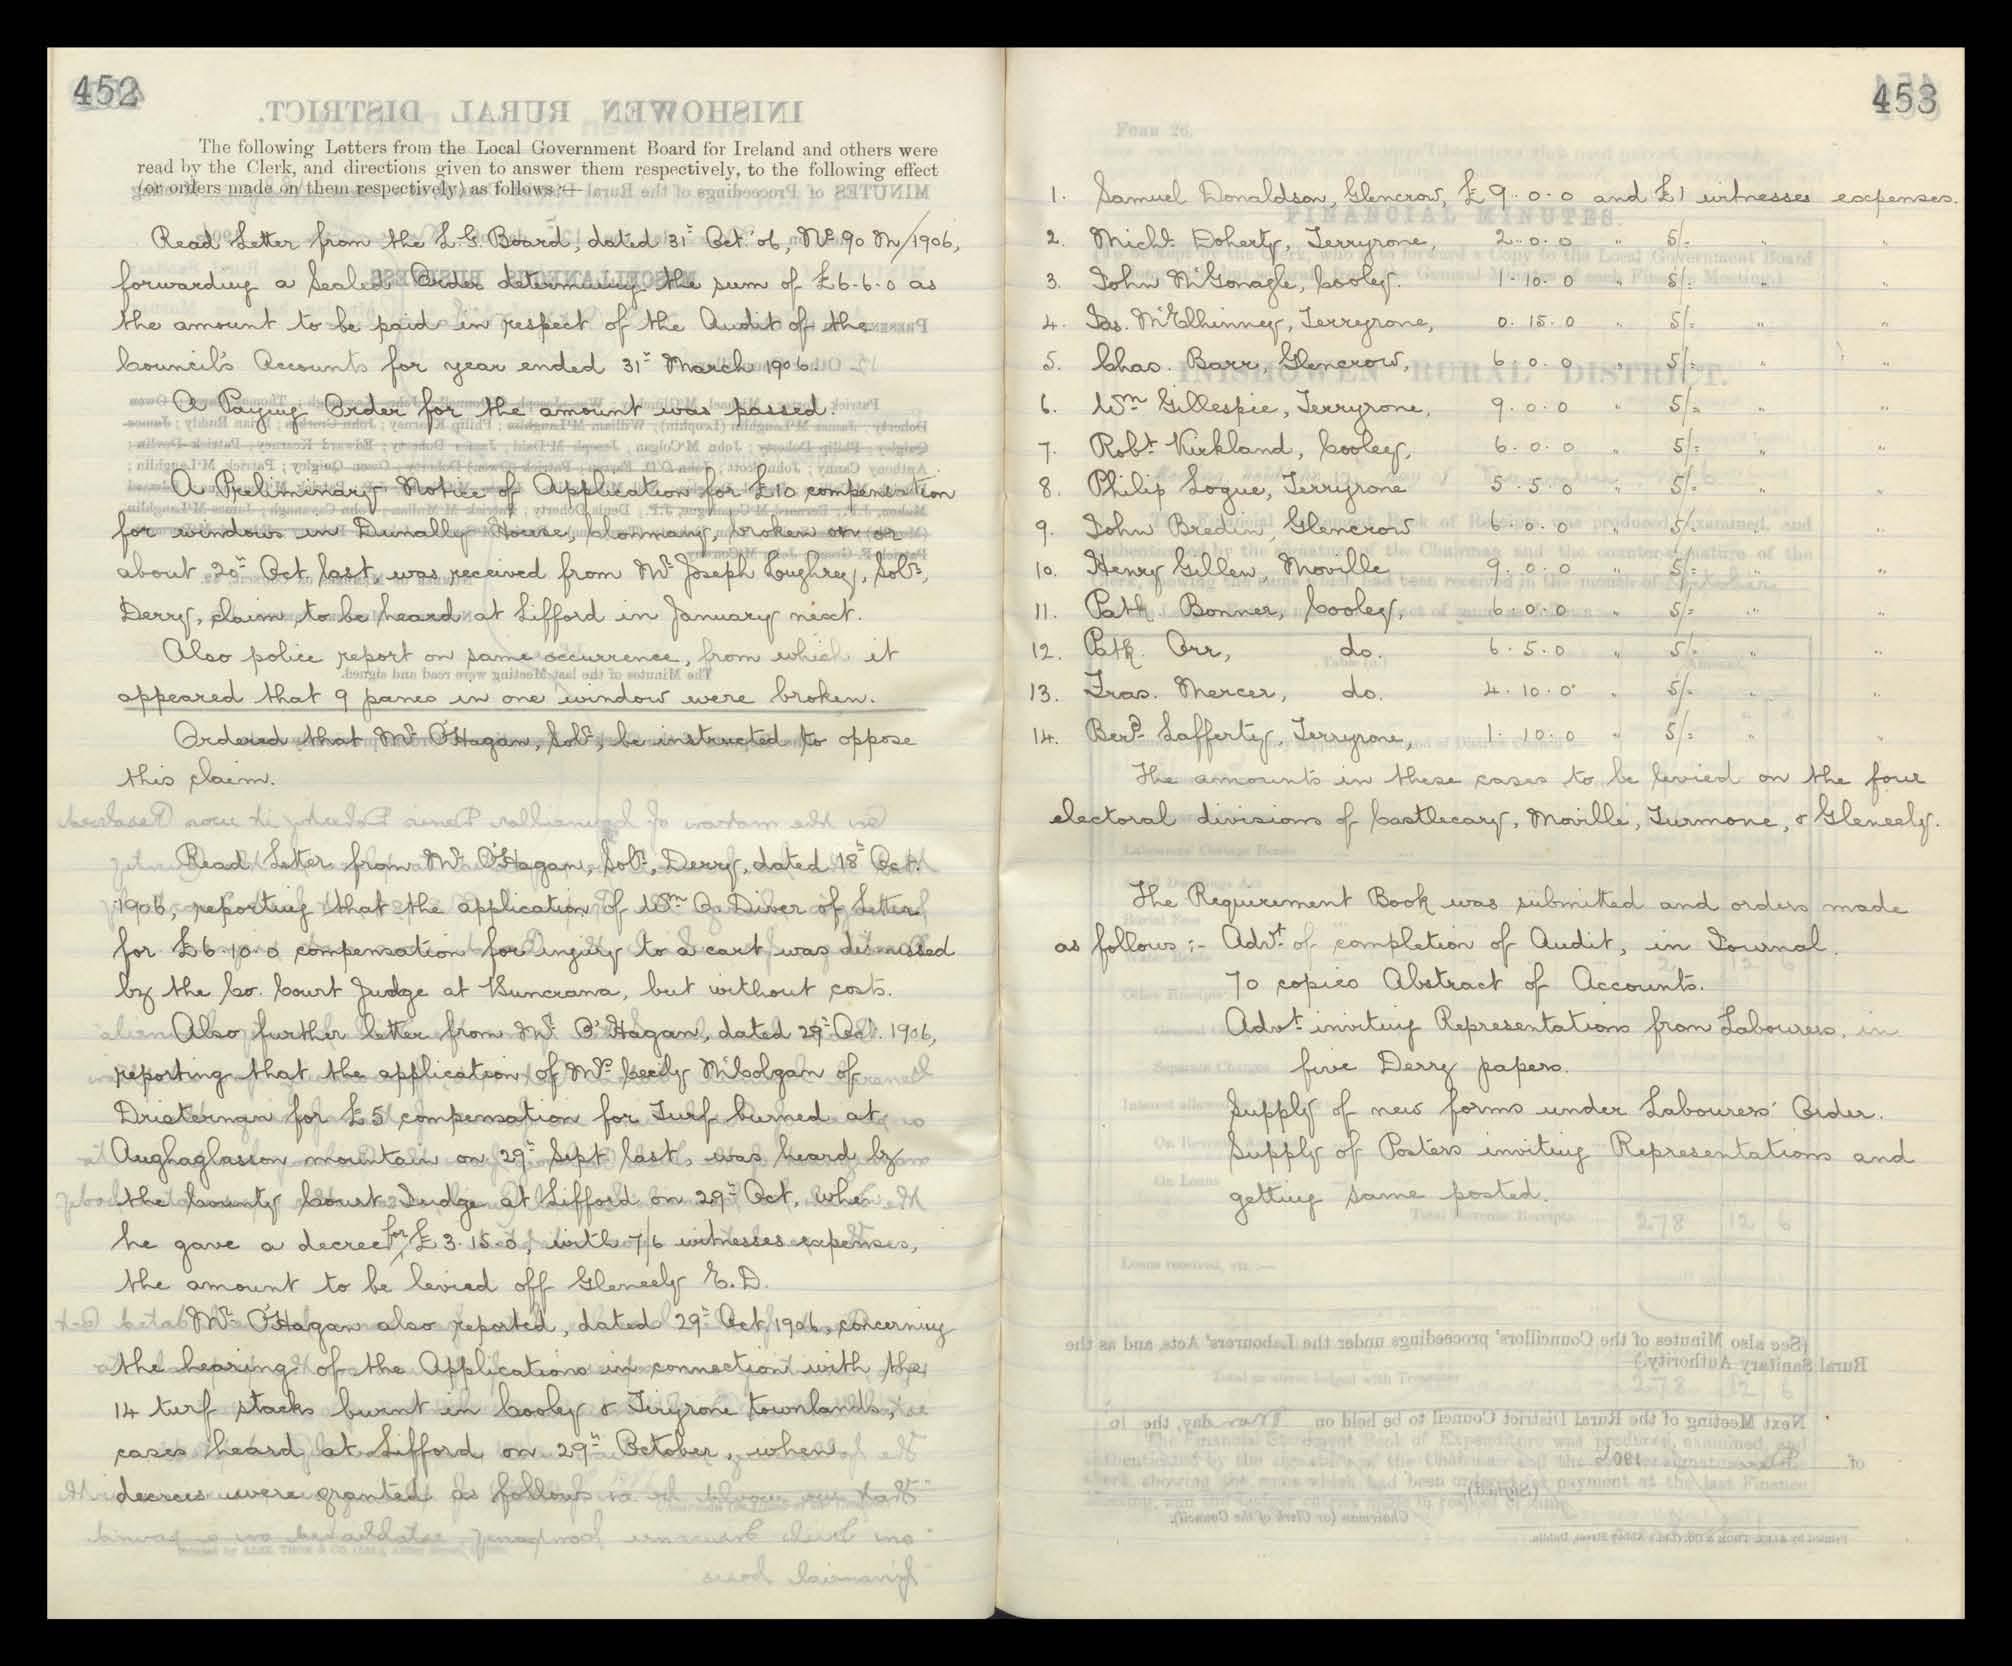 452
The following Letters from the Local Government Board for Ireland and others were
read by the Clerk, and directions given to answer them respectively, to the following effect
(or orders made on them respectively) as follows:—
Read Letter from the L.G. Board, dated 31st Oct. '06, No. 90 M/1906,
forwarding a Sealed Order determining the sum of £6-6-0 as
the amount to be paid in respect of the Audit of the
Council's Accounts for year ended 31st March 1906.
A Paying Order for the amount was passed.
A Preliminary Notice of Application for £10 compensation
for windows in Dunally House, Clonmany, broken on or
about 20th Oct last, was received from Mr Joseph Loughrey, Solr.,
Derry, claim to be heard at Lifford in January next.
Also police report on same occurrence, from which it
appeared that 9 panes in one window were broken.
Ordered that Mr O'Hagan, Solr., be instructed to oppose
this claim.
Read Letter from Mr O'Hagan, Solr., Derry, dated 18th Oct.
1906, reporting that the application of Wm A Diver of Letter
for £6.10.0 compensation for injury to a cart was dismissed
by the Co. Court Judge at Buncrana, but without costs.
Also further letter from Mr. O'Hagan, dated 29th Oct. 1906,
reporting that the application of Mrs Cecily McColgan of
Dristernan for £5 compensation for Turf burned at
Aughaglasson mountain on 29th Sept last, was heard by
the County Court Judge at Lifford on 29th Oct, when
he gave a decree for £3.15.0, with 7/6 witnesses expenses,
the amount to be levied off Gleneely E.D.
Mr O'Hagan also reported, dated 29th Oct 1906, concerning
the hearing of the Applications in connection with the
14 turf stacks burnt in Cooley & Tiryrone townlands,
cases heard at Lifford on 29th October, when
decrees were granted as follows
453
1. Samuel Donaldson, Glencrow, £9..0.0 and £1 witnesses expenses.
2. Michl. Doherty, Terryrone, 2..0.0 " 5/= " "
3. John McGonagle, Cooley. 1.10.0 " 5/= " "
4. Jas. McElhinney, Terryrone, 0.15.0 " 5/= " "
5. Chas. Barr, Glencrow, 6.0.0 " 5/= " "
6. Wm Gillespie, Terryrone, 9.0.0 " 5/= " "
7. Robt Kirkland, Cooley, 6.0.0 " 5/= " "
8. Philip Logue, Terryrone 5.5.0 " 5/= " "
9. John Bredin, Glencrow 6.0.0 " 5/= " "
10. Henry Gillen, Moville 9.0.0 " 5/= " "
11. Patk. Bonner, Cooley, 6.0.0 " 5/= " "
12. Patk. Orr, do. 6.5.0 " 5/= " "
13. Fras. Mercer, do. 4.10.0 " 5/= " "
14. Berd. Lafferty, Terryrone, 1.10.0 " 5/= " "
The amounts in these cases to be levied on the four
electoral divisions of Castlecary, Moville, Turmone, & Gleneely.
The Requirement Book was submitted and orders made
as follows:- Advt. of completion of Audit, in Journal.
70 copies Abstract of Accounts.
Advt inviting Representations from Labourers, in
five Derry papers.
Supply of new forms under Labourers' Order.
Supply of Posters inviting Representations and
getting same posted.